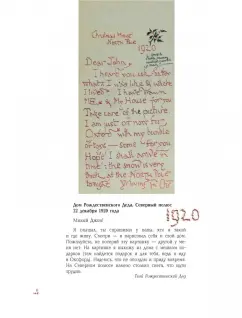 Christmas House
North Pole
1920
Dear John
I heard you ask daddy
what I was like & where
I lived. I have drawn
ME & My House for you
Take care of the picture
I am just off now for
Oxford with my bundle
of toys — some for you
Hope I shall arrive in
time: the snow is very
thick at the North Pole
tonight Yr loving Fr. Chr.
Дом Рождественского Деда, Северный полюс
22 декабря 1920 года
1920
Милый Джон!
Я слышал, ты спрашивал у папы, какой я
и где живу. Смотри — я нарисовал себя и свой дом.
Пожалуйста, не потеряй эту картинку — другой у меня
нет. На картинке я
подарок и для тебя), я иду
в Оксфорд. Надеюсь, что не опоздаю и приду вовремя.
На Северном полюсе намело столько снега, что идти
трудно.
Твой Рождественский Дед